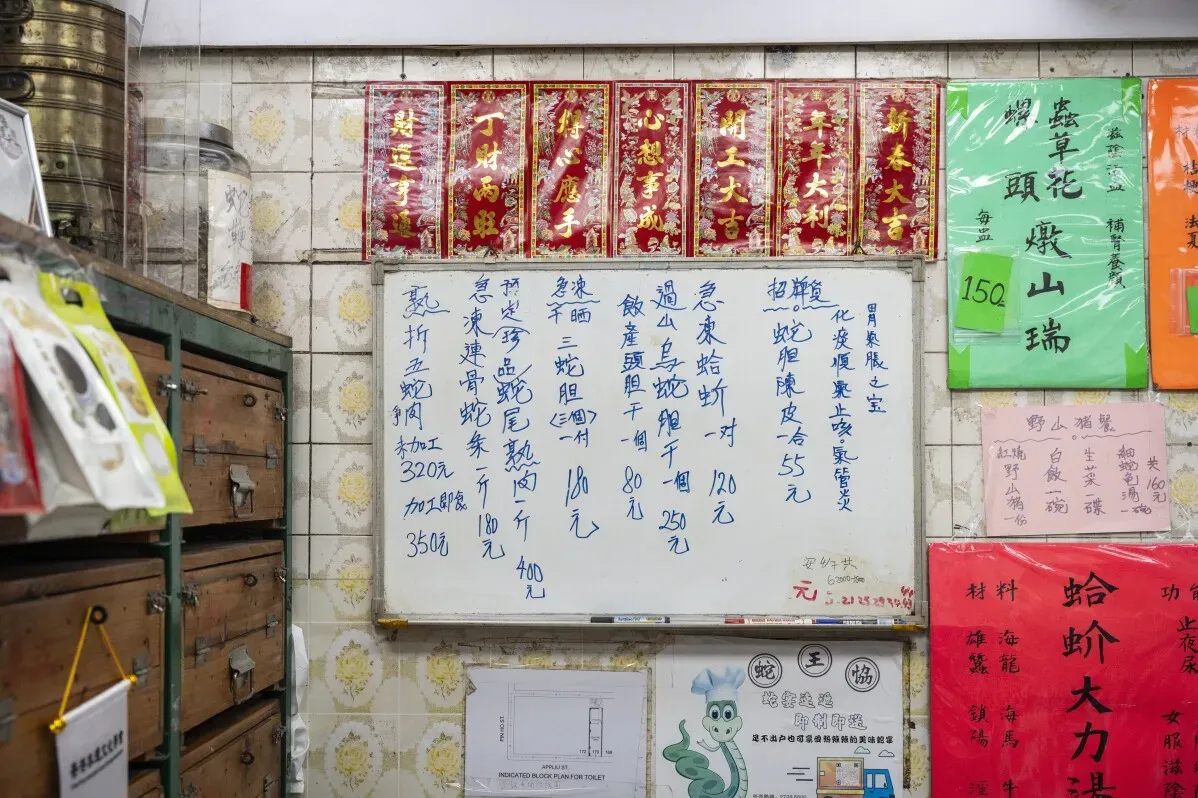 新春大吉
年年大利
開工大吉
心想事成
得心應手
丁財兩旺
財運亨通
胃氣脹之宝
化痰順氣止咳。氣管炎
招牌
蛇胆陳皮一合55元
急凍蛤蚧一对120元
過山烏蛇胆干一個250元
飯產頭胆干一個80元
急凍
干晒
三蛇胆
〈三個〉
一付
180元
預定珍品蛇尾熟肉一斤400元
急凍連骨蛇条一斤180元
熟折五蛇肉
未加工
320元
加工即食
350元
滋陰補血
補腎養顏
蟲草花燉山瑞
螺頭
每盅
150
野山猪餐
共160元
細蛇羹湯一碗
生菜一碟
白飯一碗
紅燒野山猪一份
蛤蚧大力湯
材料
海龍
海馬
雄蠶
鎖陽
止夜尿
蛇王協
蛇宴速遞
即制即送
足不出户也可享受热辣辣的美味蛇宴
PIN HO ST.
172
170
168
APPLIU ST.
INDICATED BLOCK PLAN FOR TOILET